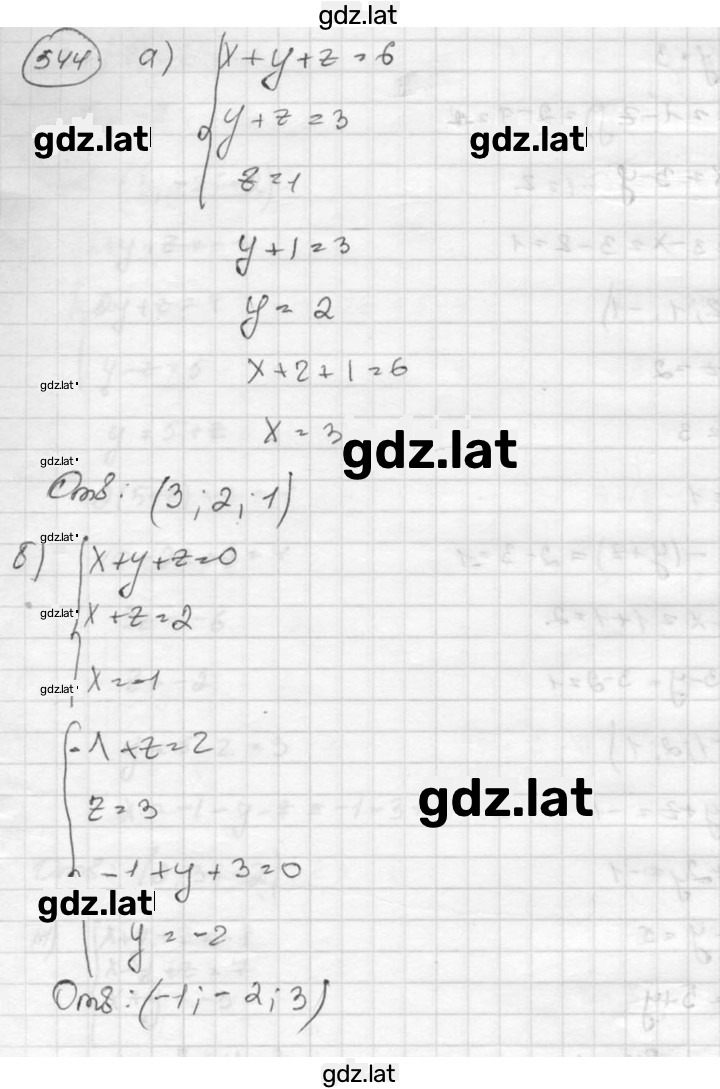 gdz.lat
544 а) x+y+z=6
y+z=3
gdz.lat gdz.lat
z=1
y+1=3
y=2
gdz.lat x+2+1=6
x=3 gdz.lat
gdz.lat
Отв: (3; 2; 1)
gdz.lat
б) x+y+z=0
gdz.lat x+z=2
gdz.lat x=-1
-1+z=2
z=3 gdz.lat
-1+y+3=0
gdz.lat
y=-2
Отв: (-1; -2; 3)
gdz.lat